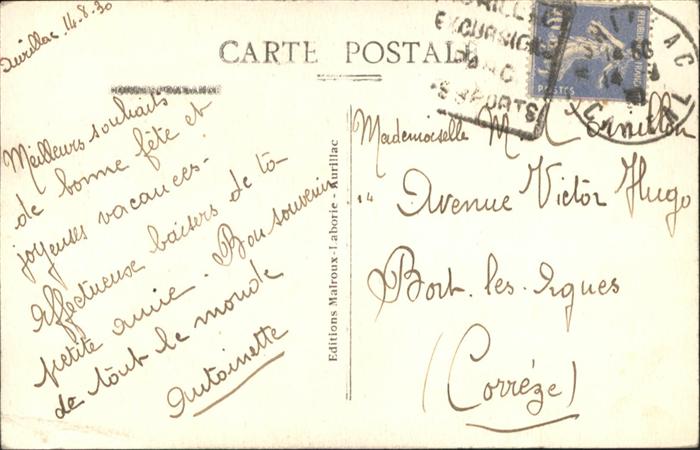 Aurillac. 14.8.30
CARTE POSTALE
EXCURSIONS
SPORTS
POSTES
Meilleurs souhaits
de bonne fête et
joyeuses vacances.
Affectueuse baisers de ta
petite amie. Bon souvenir
de tout le monde
Antoinette
Editions Malroux-Laborie - Aurillac
Mademoiselle M
14 Avenue Victor Hugo
Bort. les. Orgues
(Corrèze)